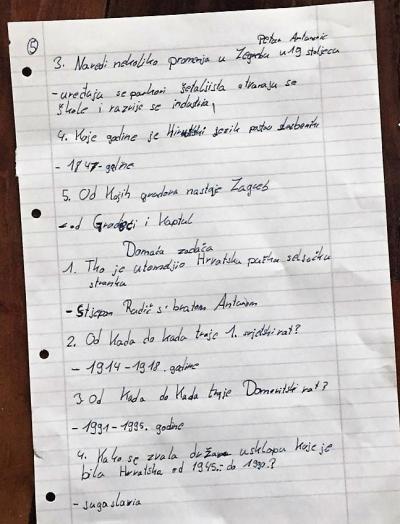 5
Petra Antunović
3. Navedi nekoliko promjena u Zagrebu u 19 stoljeću
- uređuju se parkovi šetališta otvaraju se
škole i razvije se industrija
4. Koje godine je Hrvatski jezik postao službeni
- 1847. godine
5. Od kojih gradova nastaje Zagreb
- od Gradeci i Kaptul
Domaća zadaća
1. Tko je utemeljio Hrvatsku pučku seljačku
stranku
- Stjepan Radić s bratom Antunom
2. Od kada do kada traje 1. svjetski rat?
- 1914 - 1918. godine
3. Od kada do kada traje Domovinski rat?
- 1991 - 1995. godine
4. Kako se zvala država usklopu koje je
bila Hrvatska od 1945. do 1990.?
- Jugoslavia